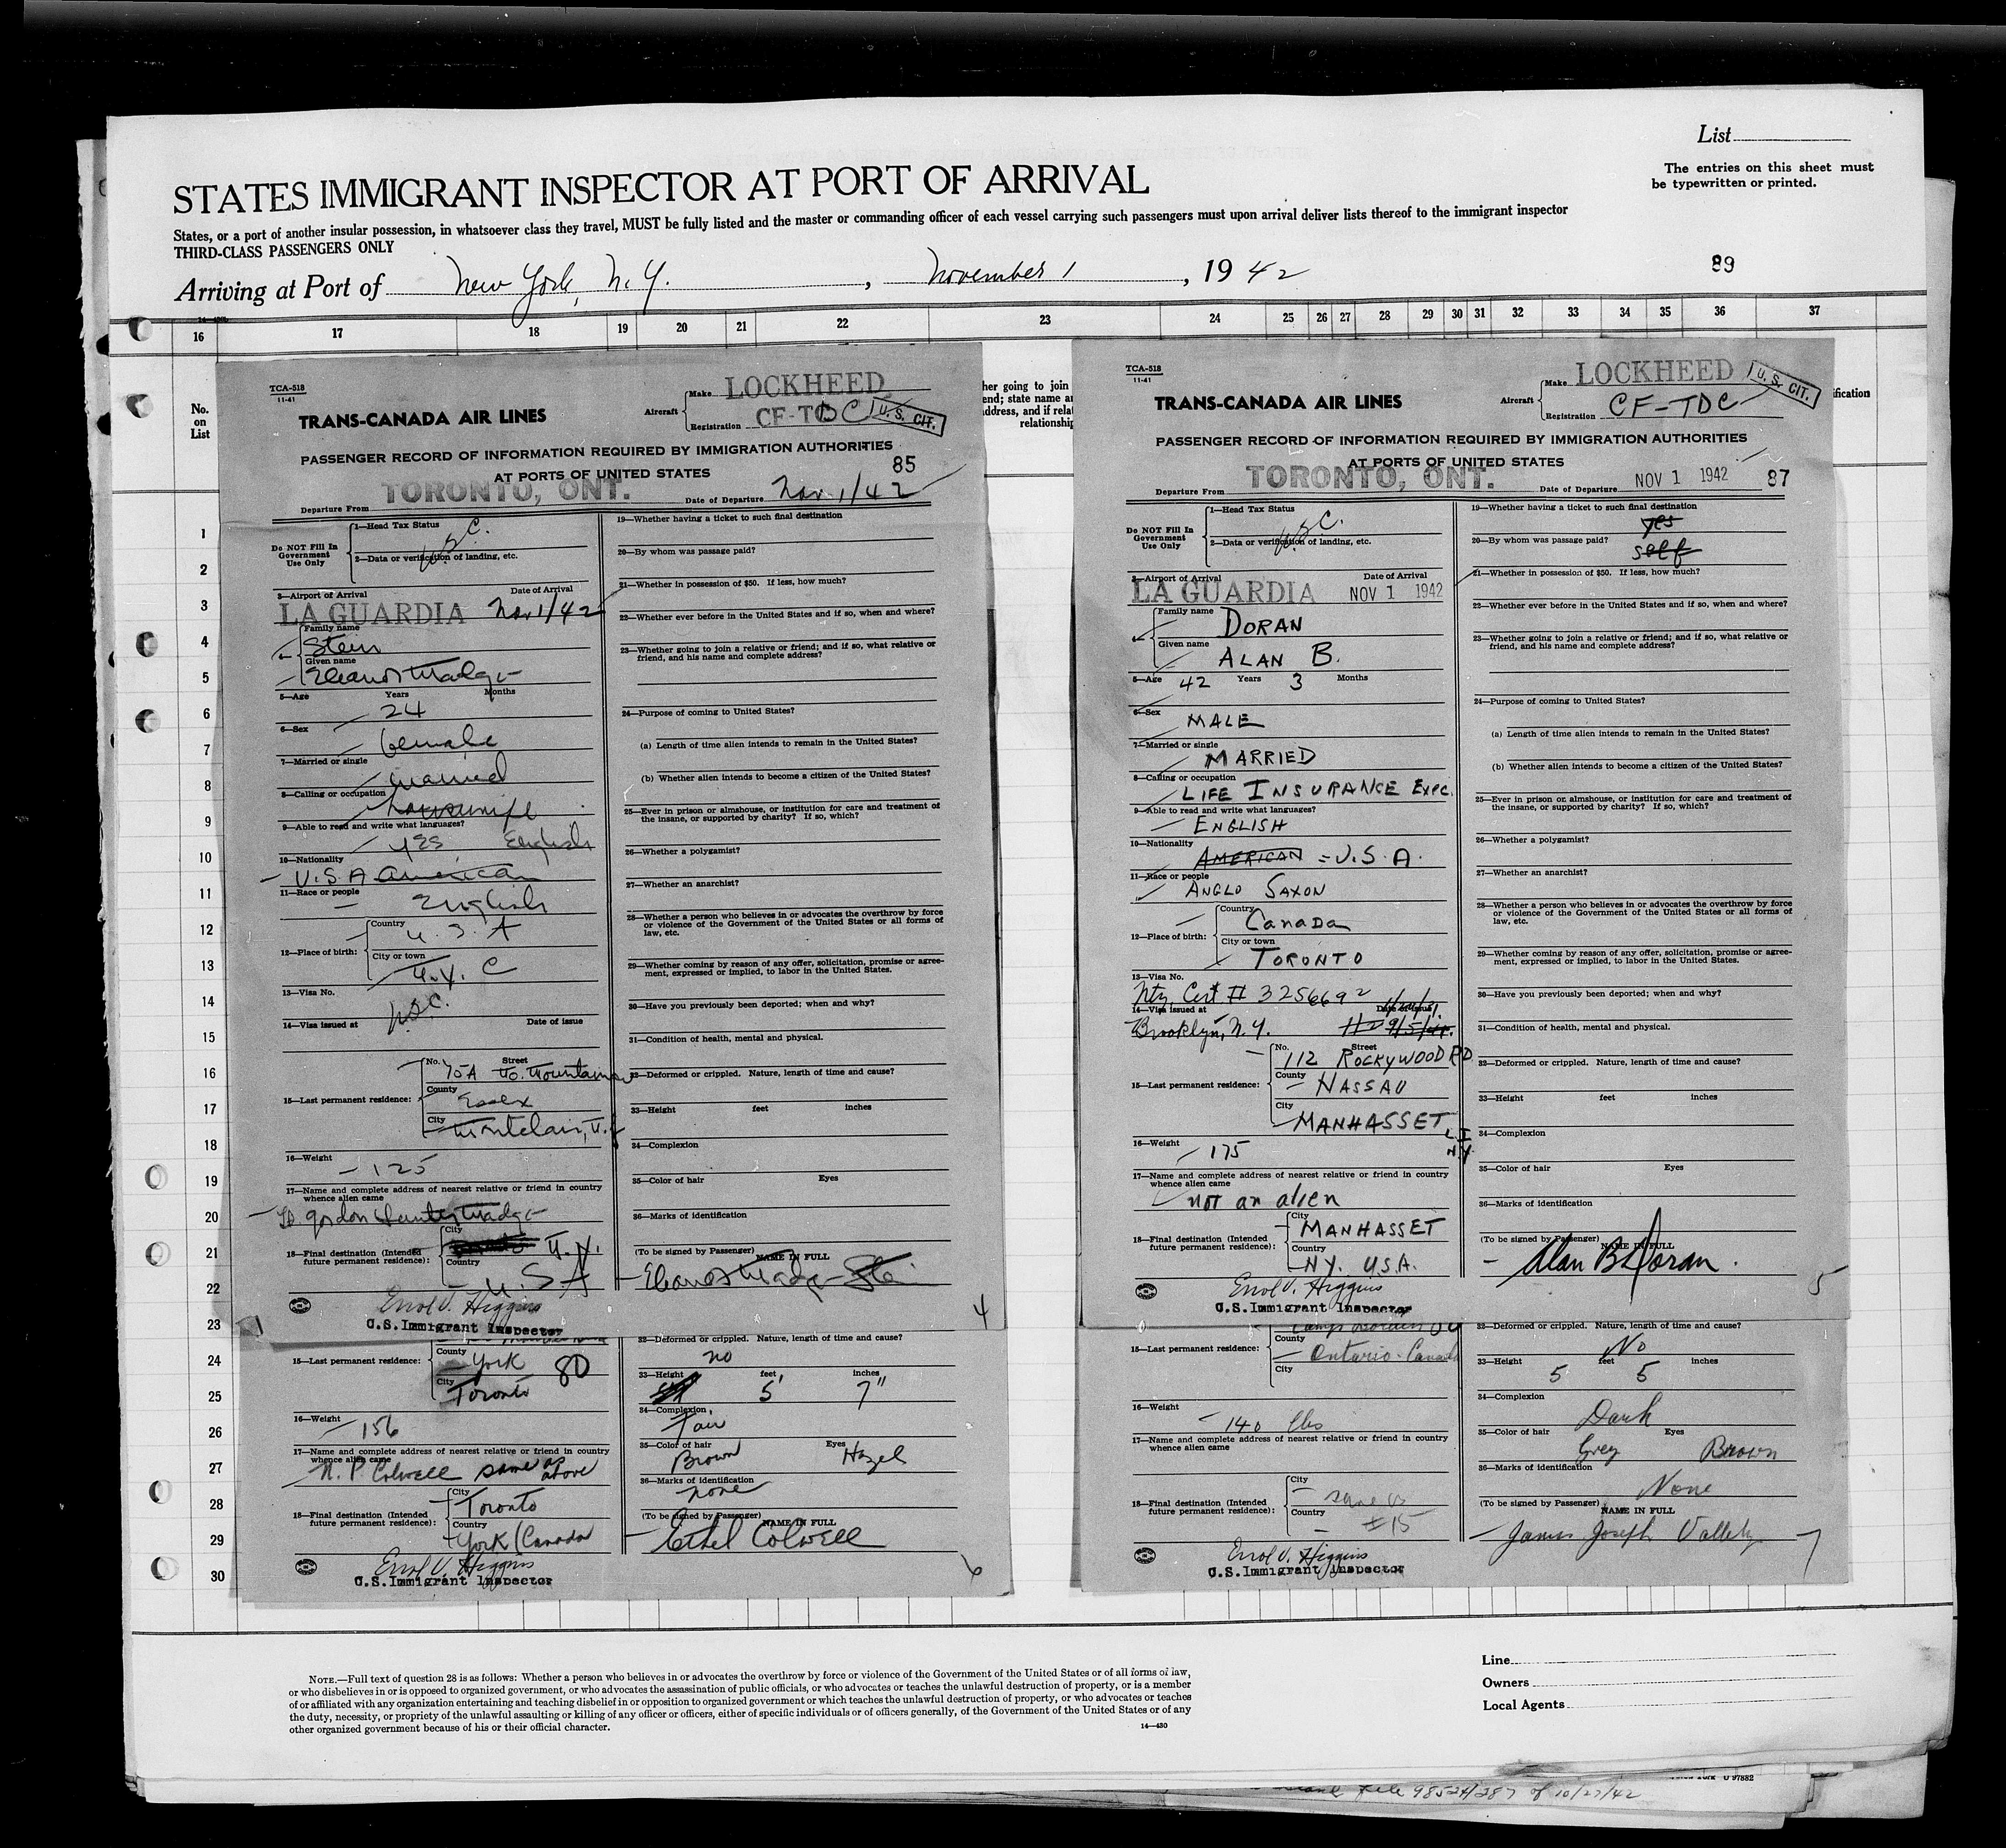 List
The entries on this sheet must
be typewritten or printed.
STATES IMMIGRANT INSPECTOR AT PORT OF ARRIVAL
States, or a port of another insular possession, in whatsoever class they travel, MUST be fully listed and the master or commanding officer of each vessel carrying such passengers must upon arrival deliver lists thereof to the immigrant inspector
THIRD-CLASS PASSENGERS ONLY
Arriving at Port of New York, N. Y. , November 1 , 19 42
89
16 17 18 19 20 21 22 23 24 25 26 27 28 29 30 31 32 33 34 35 36 37
No.
on
List
1
2
3
4
5
6
7
8
9
10
11
12
13
14
15
16
17
18
19
20
21
22
23
24
25
26
27
28
29
30
TCA-518
11-41
TRANS-CANADA AIR LINES
Aircraft
Make LOCKHEED
Registration CF-TDC
U. S. CIT.
PASSENGER RECORD OF INFORMATION REQUIRED BY IMMIGRATION AUTHORITIES
AT PORTS OF UNITED STATES
85
Departure From TORONTO, ONT. Date of Departure Nov 1/42
Do NOT Fill In
Government
Use Only
1—Head Tax Status
U.S.C.
2—Data or verification of landing, etc.
3—Airport of Arrival Date of Arrival
LA GUARDIA Nov 1/42
Family name
Stein
Given name
Eleanor Madge
5—Age Years Months
24
6—Sex
female
7—Married or single
married
8—Calling or occupation
housewife
9—Able to read and write what languages?
yes English
10—Nationality
U.S.A American
11—Race or people
English
12—Place of birth:
Country
U.S.A
City or town
N.Y. C
13—Visa No.
U.S.C.
14—Visa issued at Date of issue
15—Last permanent residence:
No. Street
70A No. Mountain
County
Essex
City
Montclair, N.J
16—Weight
125
17—Name and complete address of nearest relative or friend in country
whence alien came
gordon Madge
18—Final destination (Intended
future permanent residence):
City
N.Y.
Country
U.S.A
Errol V. Higgins
U.S.Immigrant Inspector
19—Whether having a ticket to such final destination
20—By whom was passage paid?
21—Whether in possession of $50. If less, how much?
22—Whether ever before in the United States and if so, when and where?
23—Whether going to join a relative or friend; and if so, what relative or
friend, and his name and complete address?
24—Purpose of coming to United States?
(a) Length of time alien intends to remain in the United States?
(b) Whether alien intends to become a citizen of the United States?
25—Ever in prison or almshouse, or institution for care and treatment of
the insane, or supported by charity? If so, which?
26—Whether a polygamist?
27—Whether an anarchist?
28—Whether a person who believes in or advocates the overthrow by force
or violence of the Government of the United States or all forms of
law, etc.
29—Whether coming by reason of any offer, solicitation, promise or agree-
ment, expressed or implied, to labor in the United States.
30—Have you previously been deported; when and why?
31—Condition of health, mental and physical.
32—Deformed or crippled. Nature, length of time and cause?
33—Height feet inches
34—Complexion
35—Color of hair Eyes
36—Marks of identification
(To be signed by Passenger) NAME IN FULL
Eleanor Madge Stein
4
15—Last permanent residence:
County
York 80
City
Toronto
16—Weight
156
17—Name and complete address of nearest relative or friend in country
whence alien came
N. P. Colwell same as above
18—Final destination (Intended
future permanent residence):
City
Toronto
Country
York (Canada
Errol V. Higgins
U.S.Immigrant Inspector
32—Deformed or crippled. Nature, length of time and cause?
no
33—Height feet inches
5' 7"
34—Complexion
Fair
35—Color of hair Eyes
Brown Hazel
36—Marks of identification
none
(To be signed by Passenger) NAME IN FULL
Ethel Colwell
6
her going to join
end; state name a
address, and if rela
relationship
ification
TCA-518
11-41
TRANS-CANADA AIR LINES
Aircraft
Make LOCKHEED
Registration CF-TDC
U. S. CIT.
PASSENGER RECORD OF INFORMATION REQUIRED BY IMMIGRATION AUTHORITIES
AT PORTS OF UNITED STATES
Departure From TORONTO, ONT. Date of Departure NOV 1 1942 87
Do NOT Fill In
Government
Use Only
1—Head Tax Status
U.S.C.
2—Data or verification of landing, etc.
3—Airport of Arrival Date of Arrival
LA GUARDIA NOV 1 1942
Family name
DORAN
Given name
ALAN B.
5—Age 42 Years 3 Months
6—Sex
MALE
7—Married or single
MARRIED
8—Calling or occupation
LIFE INSURANCE Exec.
9—Able to read and write what languages?
ENGLISH
10—Nationality
AMERICAN = U.S.A.
11—Race or people
ANGLO SAXON
12—Place of birth:
Country
Canada
City or town
TORONTO
13—Visa No.
Ntz. Cert # 3256692
14—Visa issued at Date of issue
Brooklyn, N.Y.
15—Last permanent residence:
No. Street
112 ROCKYWOOD RD
County
NASSAU
City
MANHASSET
L.I
N.Y.
16—Weight
175
17—Name and complete address of nearest relative or friend in country
whence alien came
not an alien
18—Final destination (Intended
future permanent residence):
City
MANHASSET
Country
NY. U.S.A.
Errol V. Higgins
U.S.Immigrant Inspector
19—Whether having a ticket to such final destination
yes
20—By whom was passage paid?
self
21—Whether in possession of $50. If less, how much?
22—Whether ever before in the United States and if so, when and where?
23—Whether going to join a relative or friend; and if so, what relative or
friend, and his name and complete address?
24—Purpose of coming to United States?
(a) Length of time alien intends to remain in the United States?
(b) Whether alien intends to become a citizen of the United States?
25—Ever in prison or almshouse, or institution for care and treatment of
the insane, or supported by charity? If so, which?
26—Whether a polygamist?
27—Whether an anarchist?
28—Whether a person who believes in or advocates the overthrow by force
or violence of the Government of the United States or all forms of
law, etc.
29—Whether coming by reason of any offer, solicitation, promise or agree-
ment, expressed or implied, to labor in the United States.
30—Have you previously been deported; when and why?
31—Condition of health, mental and physical.
32—Deformed or crippled. Nature, length of time and cause?
33—Height feet inches
34—Complexion
35—Color of hair Eyes
36—Marks of identification
(To be signed by Passenger) NAME IN FULL
Alan B Doran.
5
15—Last permanent residence:
Camp Borden
County
Ontario-Canada
City
16—Weight
140 lbs
17—Name and complete address of nearest relative or friend in country
whence alien came
18—Final destination (Intended
future permanent residence):
City
same as
Country
#15
Errol V. Higgins
U.S.Immigrant Inspector
32—Deformed or crippled. Nature, length of time and cause?
No
33—Height feet inches
5 5
34—Complexion
Dark
35—Color of hair Eyes
Grey Brown
36—Marks of identification
None
(To be signed by Passenger) NAME IN FULL
James Joseph Vallely
7
NOTE.—Full text of question 28 is as follows: Whether a person who believes in or advocates the overthrow by force or violence of the Government of the United States or of all forms of law,
or who disbelieves in or is opposed to organized government, or who advocates the assassination of public officials, or who advocates or teaches the unlawful destruction of property, or is a member
of or affiliated with any organization entertaining and teaching disbelief in or opposition to organized government or which teaches the unlawful destruction of property, or who advocates or teaches
the duty, necessity, or propriety of the unlawful assaulting or killing of any officer or officers, either of specific individuals or of officers generally, of the Government of the United States or of any
other organized government because of his or their official character.
14—430
Line
Owners
Local Agents
U 97882
file 98524/287 of 10/27/42